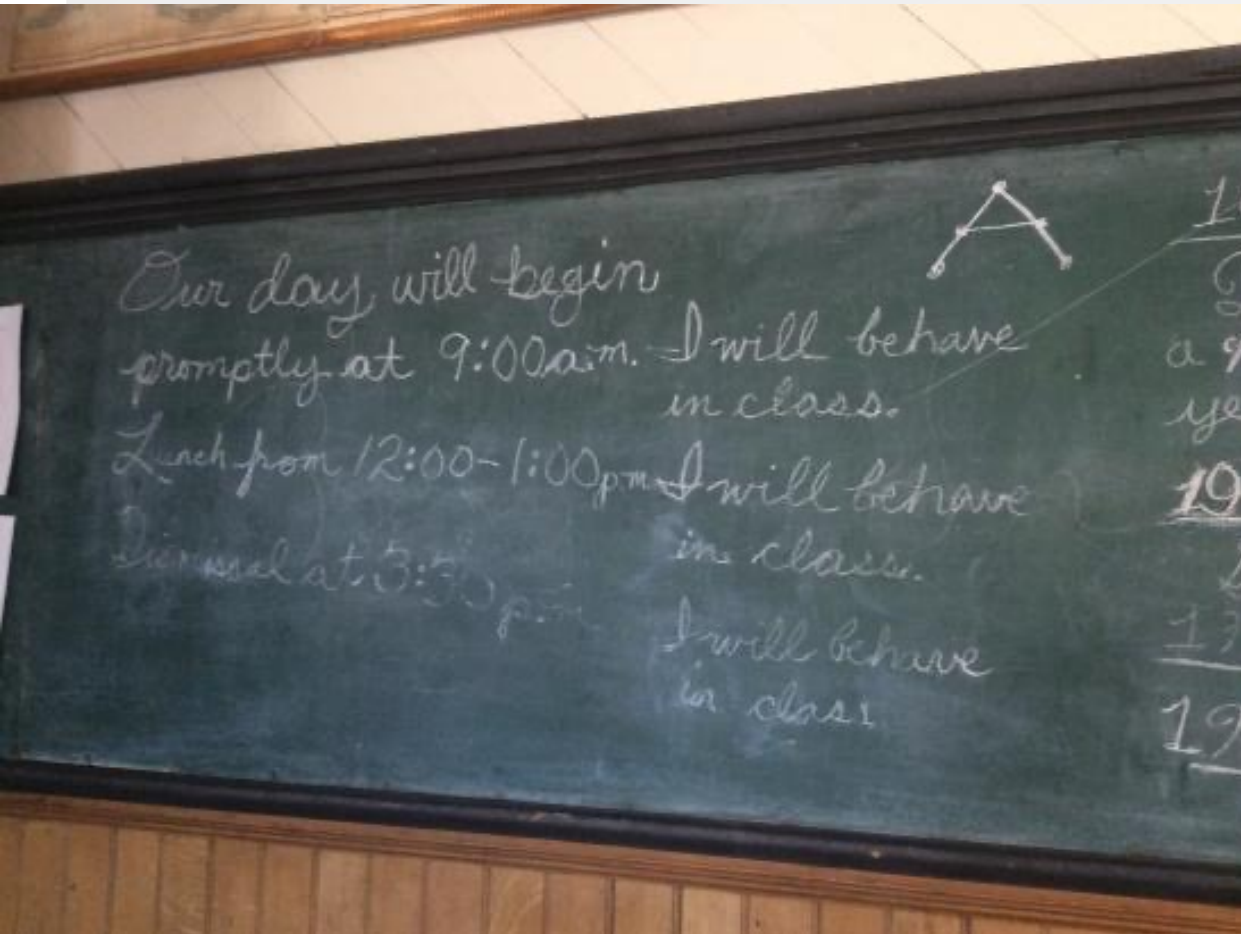 Our day will begin
promptly at 9:00a.m.
Lunch from 12:00-1:00pm
Dismissal at 3:30 pm
A
I will behave
in class.
I will behave
in class.
I will behave
in class
a
19
19